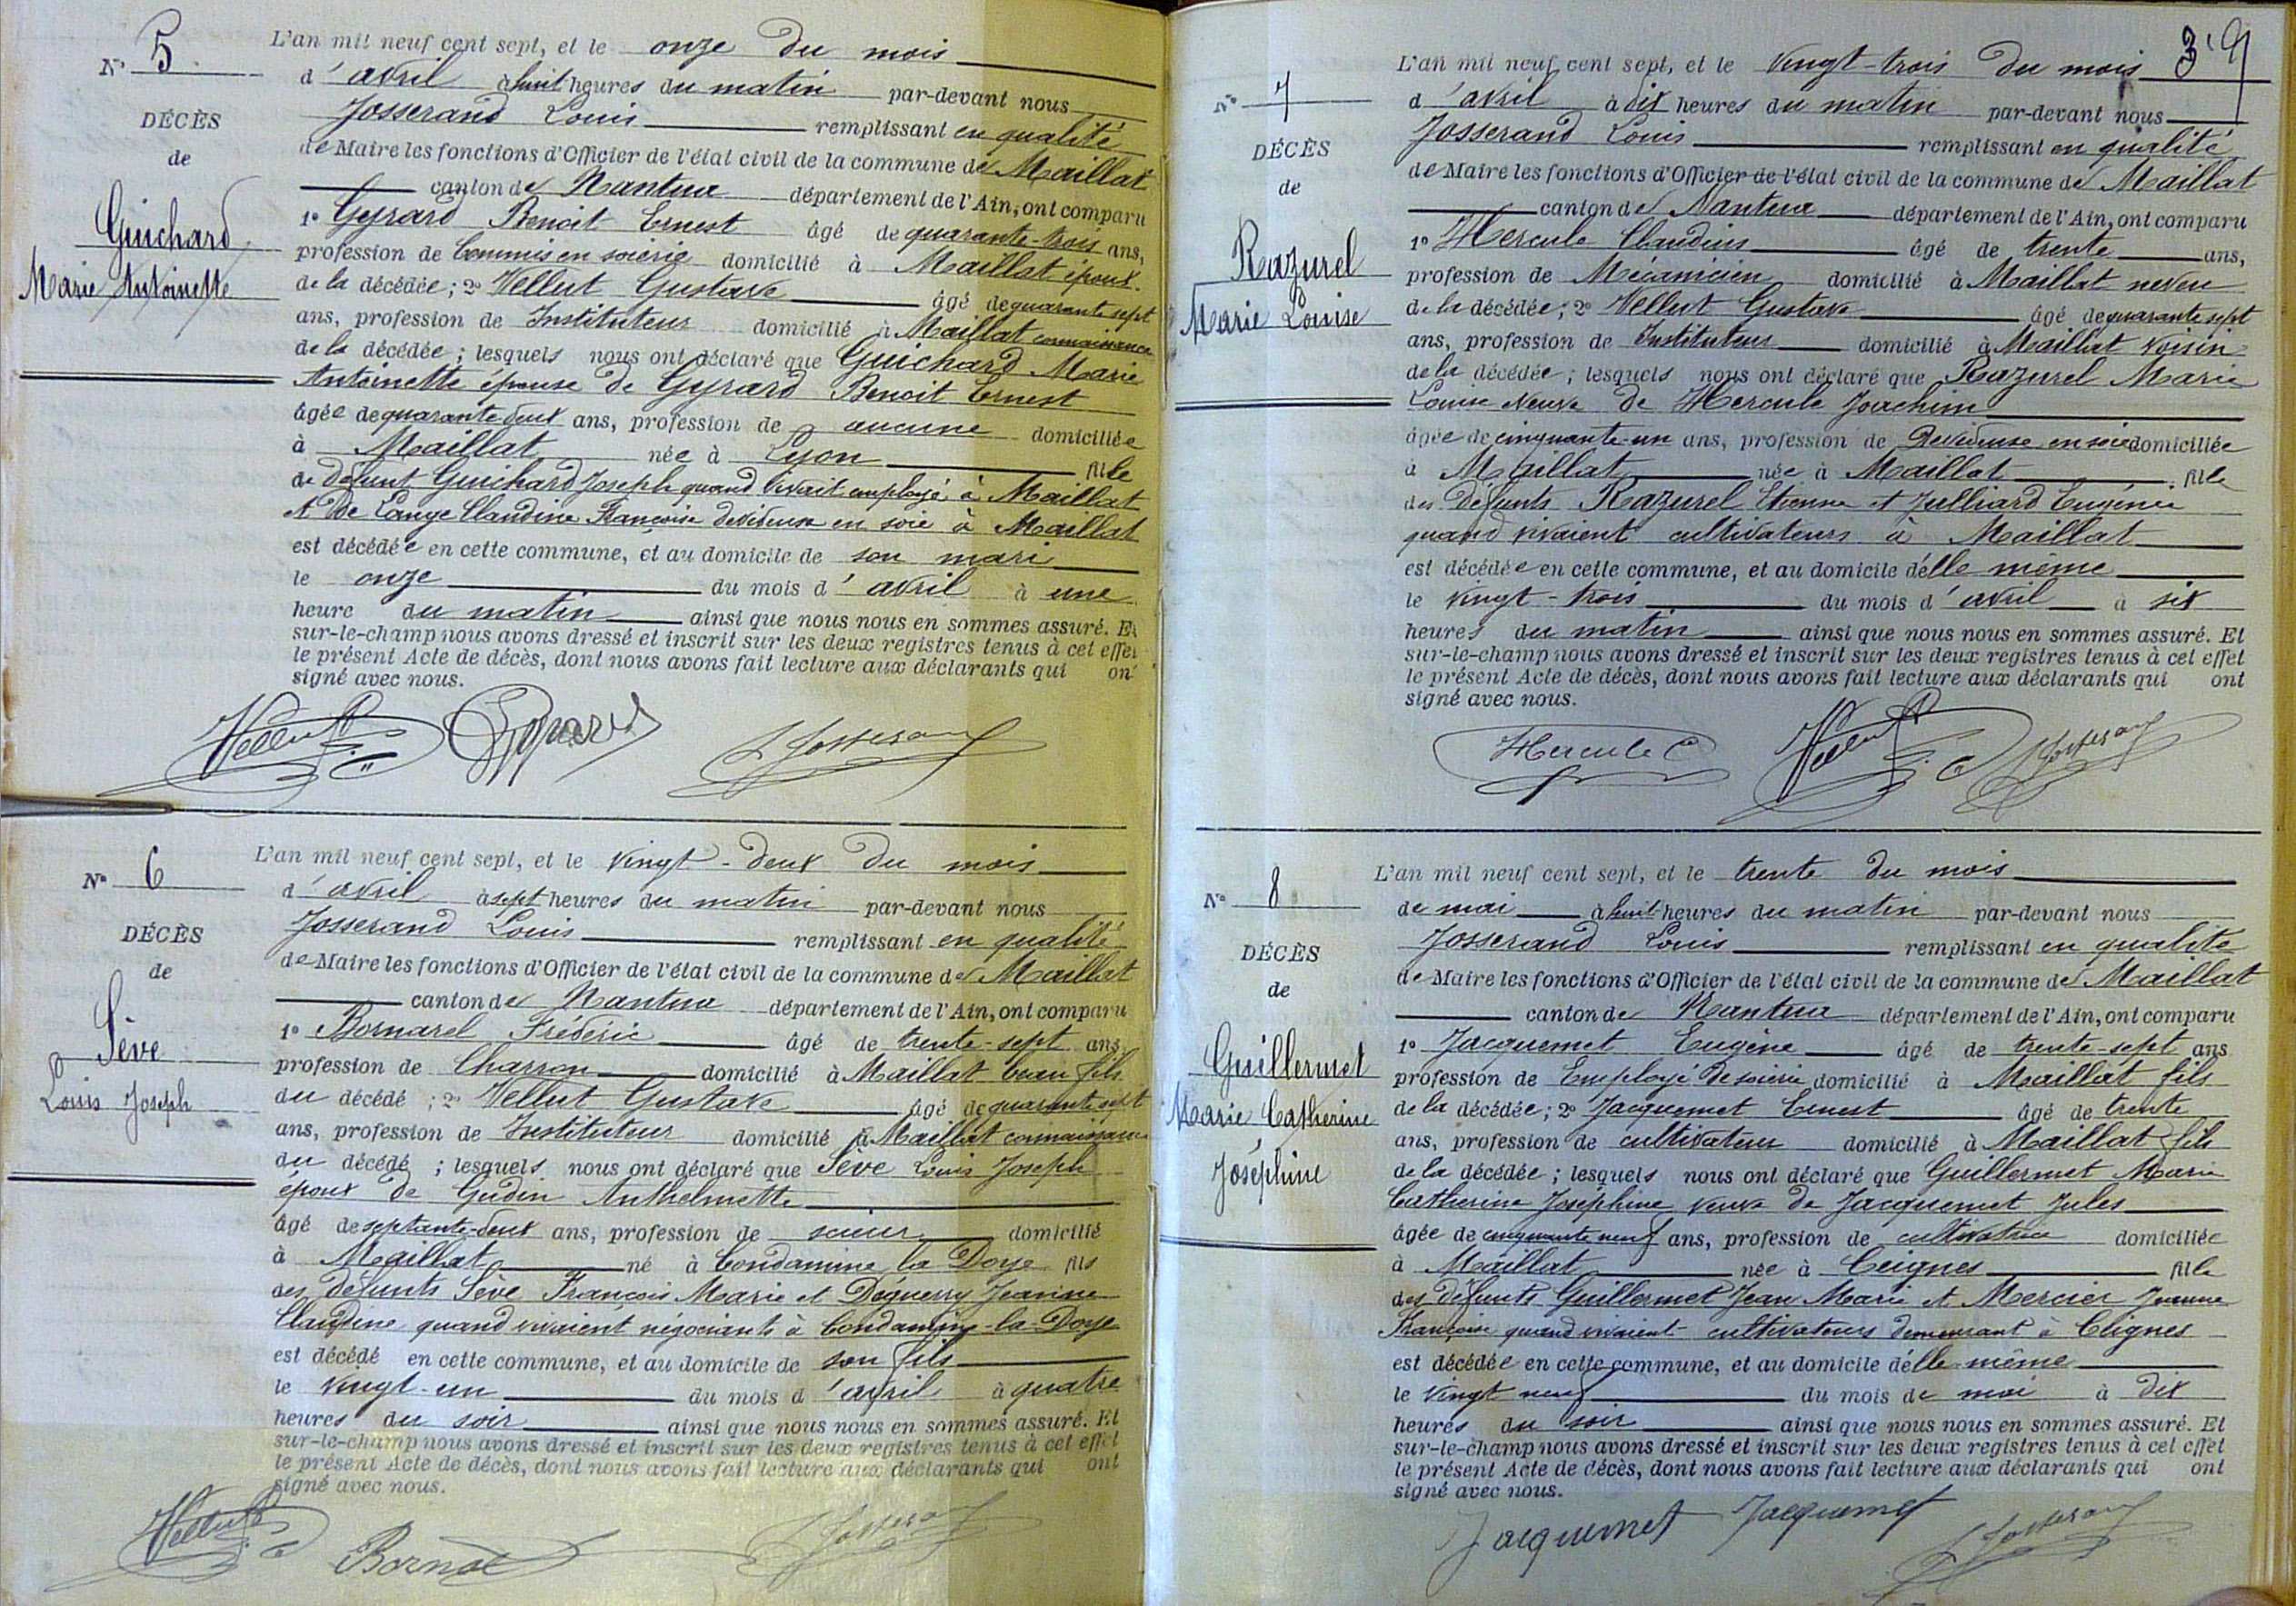 N° 5
DÉCÈS
de
Guichard
Marie Antoinette
L'an mil neuf cent sept, et le onze du mois
d'avril à huit heures du matin par-devant nous
Josserand Louis remplissant en qualité
de Maire les fonctions d'Officier de l'état civil de la commune de Maillat
canton de Nantua département de l'Ain, ont comparu
1° Gyrard Benoit Ernest âgé de quarante-trois ans,
profession de Commis en soierie domicilié à Maillat époux
de la décédée; 2° Vellut Gustave âgé de quarante sept
ans, profession de Instituteur domicilié à Maillat connaissance
de la décédée; lesquels nous ont déclaré que Guichard Marie
Antoinette épouse de Gyrard Benoit Ernest
âgée de quarante deux ans, profession de aucune domiciliée
à Maillat née à Lyon fille
de défunt Guichard Joseph quand vivait employé à Maillat
et de Lange Claudine Françoise dévideuse en soie à Maillat
est décédée en cette commune, et au domicile de son mari
le onze du mois d'avril à une
heure du matin ainsi que nous nous en sommes assuré. Et
sur-le-champ nous avons dressé et inscrit sur les deux registres tenus à cet effet
le présent Acte de décès, dont nous avons fait lecture aux déclarants qui ont
signé avec nous.
Vellut Gyrard L Josserand
N° 6
DÉCÈS
de
Sève
Louis Joseph
L'an mil neuf cent sept, et le vingt-deux du mois
d'avril à sept heures du matin par-devant nous
Josserand Louis remplissant en qualité
de Maire les fonctions d'Officier de l'état civil de la commune de Maillat
canton de Nantua département de l'Ain, ont comparu
1° Bornarel Fréderic âgé de trente-sept ans
profession de Charron domicilié à Maillat beau fils
du décédé; 2° Vellut Gustave âgé de quarante sept
ans, profession de Instituteur domicilié à Maillat connaissance
du décédé; lesquels nous ont déclaré que Sève Louis Joseph
époux de Gudin Anthelmette
âgé de septante-deux ans, profession de scieur domicilié
à Maillat né à Condamine la Doye fils
des défunts Sève François Marie et Déguerry Jeanine
Claudine quand vivaient négociants à Condamine-la-Doye
est décédé en cette commune, et au domicile de son fils
le vingt-un du mois d'avril à quatre
heures du soir ainsi que nous nous en sommes assuré. Et
sur-le-champ nous avons dressé et inscrit sur les deux registres tenus à cet effet
le présent Acte de décès, dont nous avons fait lecture aux déclarants qui ont
signé avec nous.
Vellut L Josserand
39
N° 7
DÉCÈS
de
Razurel
Marie Louise
L'an mil neuf cent sept, et le vingt-trois du mois
d'avril à dix heures du matin par-devant nous
Josserand Louis remplissant en qualité
de Maire les fonctions d'Officier de l'état civil de la commune de Maillat
canton de Nantua département de l'Ain, ont comparu
1° Hercule Claudius âgé de trente ans,
profession de Mécanicien domicilié à Maillat neveu
de la décédée; 2° Vellut Gustave âgé de quarante sept
ans, profession de Instituteur domicilié à Maillat voisin
de la décédée; lesquels nous ont déclaré que Razurel Marie
Louise veuve de Hercule Joachim
âgée de cinquante-un ans, profession de Dévideuse en soie domiciliée
à Maillat née à Maillat fille
des défunts Razurel Etienne et Julliard Eugénie
quand vivaient cultivateurs à Maillat
est décédée en cette commune, et au domicile d'elle même
le vingt-trois du mois d'avril à six
heures du matin ainsi que nous nous en sommes assuré. Et
sur-le-champ nous avons dressé et inscrit sur les deux registres tenus à cet effet
le présent Acte de décès, dont nous avons fait lecture aux déclarants qui ont
signé avec nous.
Hercule Vellut L Josserand
N° 8
DÉCÈS
de
Guillermet
Marie Catherine
Joséphine
L'an mil neuf cent sept, et le trente du mois
de mai à huit heures du matin par-devant nous
Josserand Louis remplissant en qualité
de Maire les fonctions d'Officier de l'état civil de la commune de Maillat
canton de Nantua département de l'Ain, ont comparu
1° Jacquemet Eugène âgé de trente-sept ans
profession de Employé de soierie domicilié à Maillat fils
de la décédée; 2° Jacquemet Ernest âgé de trente
ans, profession de cultivateur domicilié à Maillat fils
de la décédée; lesquels nous ont déclaré que Guillermet Marie
Catherine Joséphine veuve de Jacquemet Jules
âgée de cinquante neuf ans, profession de cultivatrice domiciliée
à Maillat née à Ceignes fille
des défunts Guillermet Jean Marie et Mercier Jeanne
Françoise quand vivaient cultivateurs demeurant à Ceignes
est décédée en cette commune, et au domicile d'elle-même
le vingt neuf du mois de mai à dix
heures du soir ainsi que nous nous en sommes assuré. Et
sur-le-champ nous avons dressé et inscrit sur les deux registres tenus à cet effet
le présent Acte de décès, dont nous avons fait lecture aux déclarants qui ont
signé avec nous.
Jacquemet Jacquemet L Josserand